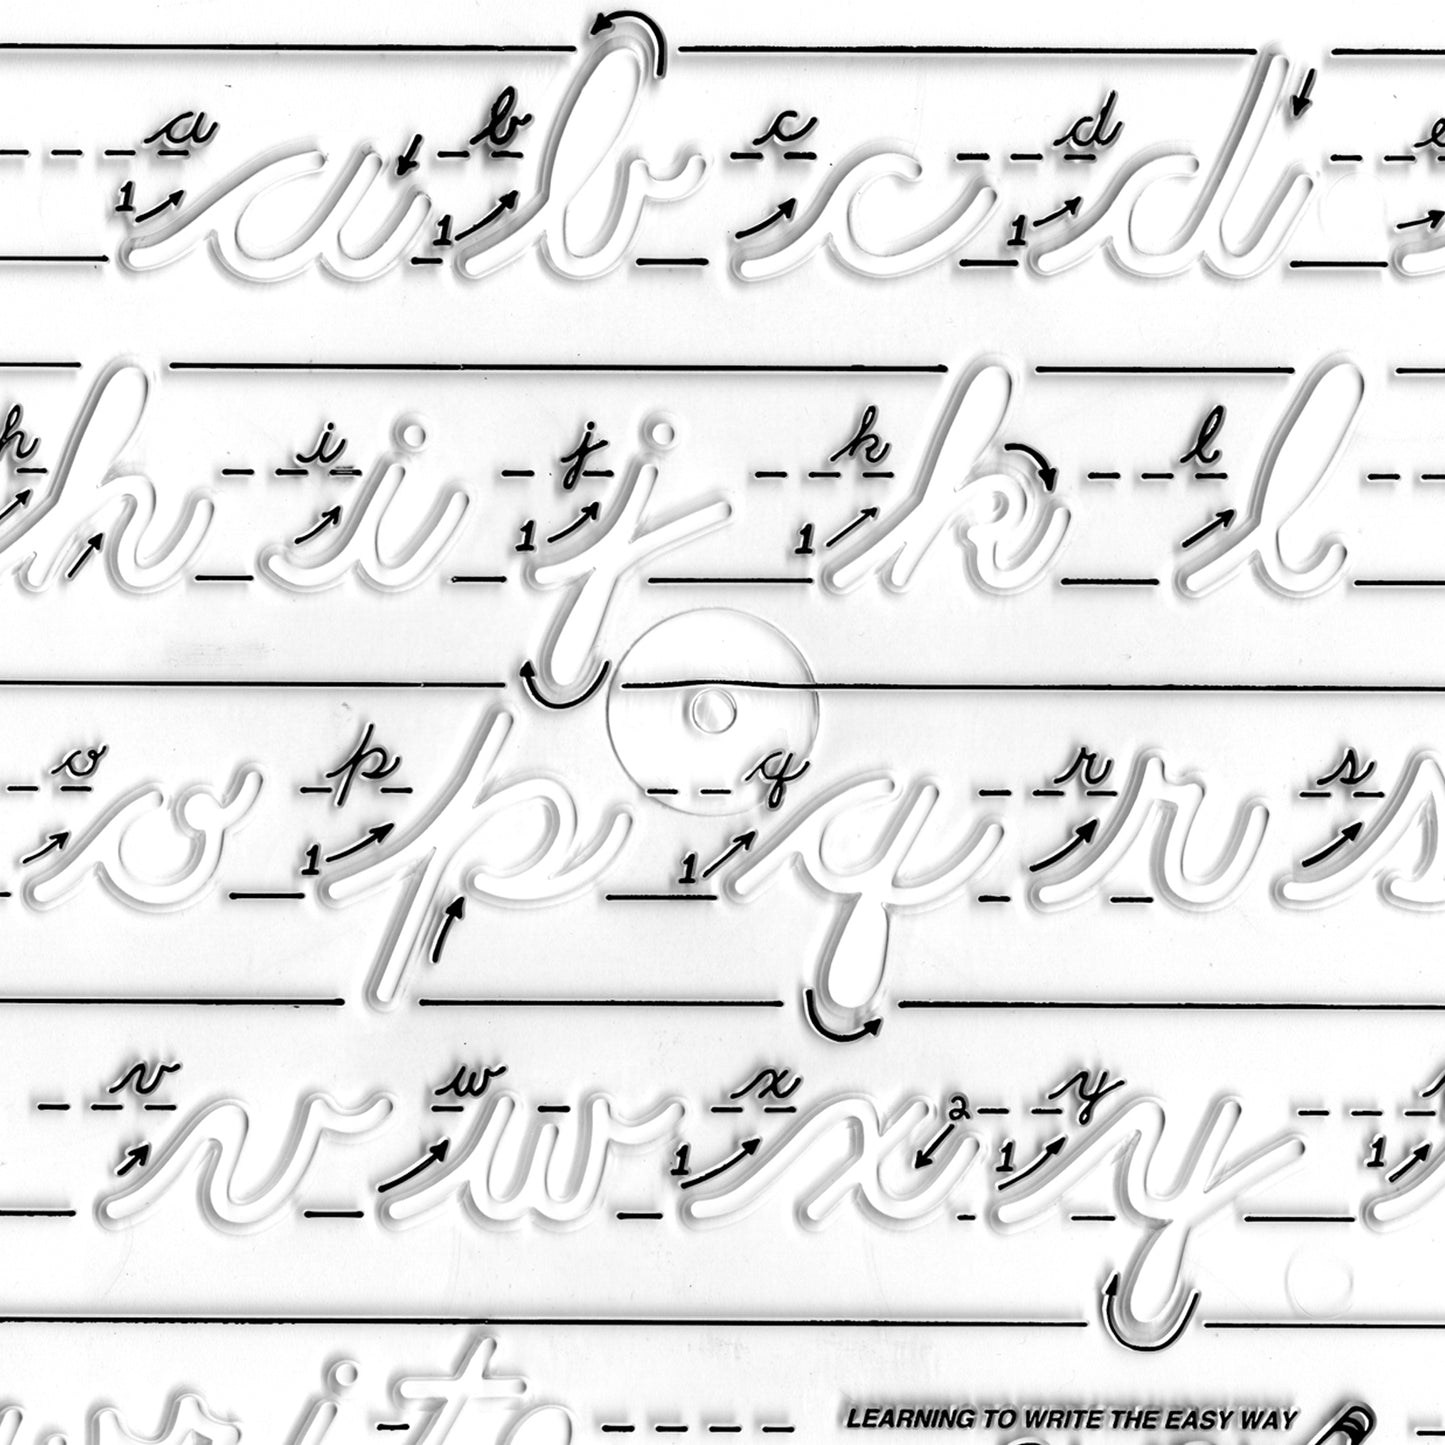 a a 1 b b 1 c c d d 1 e
h h i i j j 1 k k 1 l l
o o p p 1 q q 1 r r s s
v v w w x x 1 2 y y 1 1
write
LEARNING TO WRITE THE EASY WAY